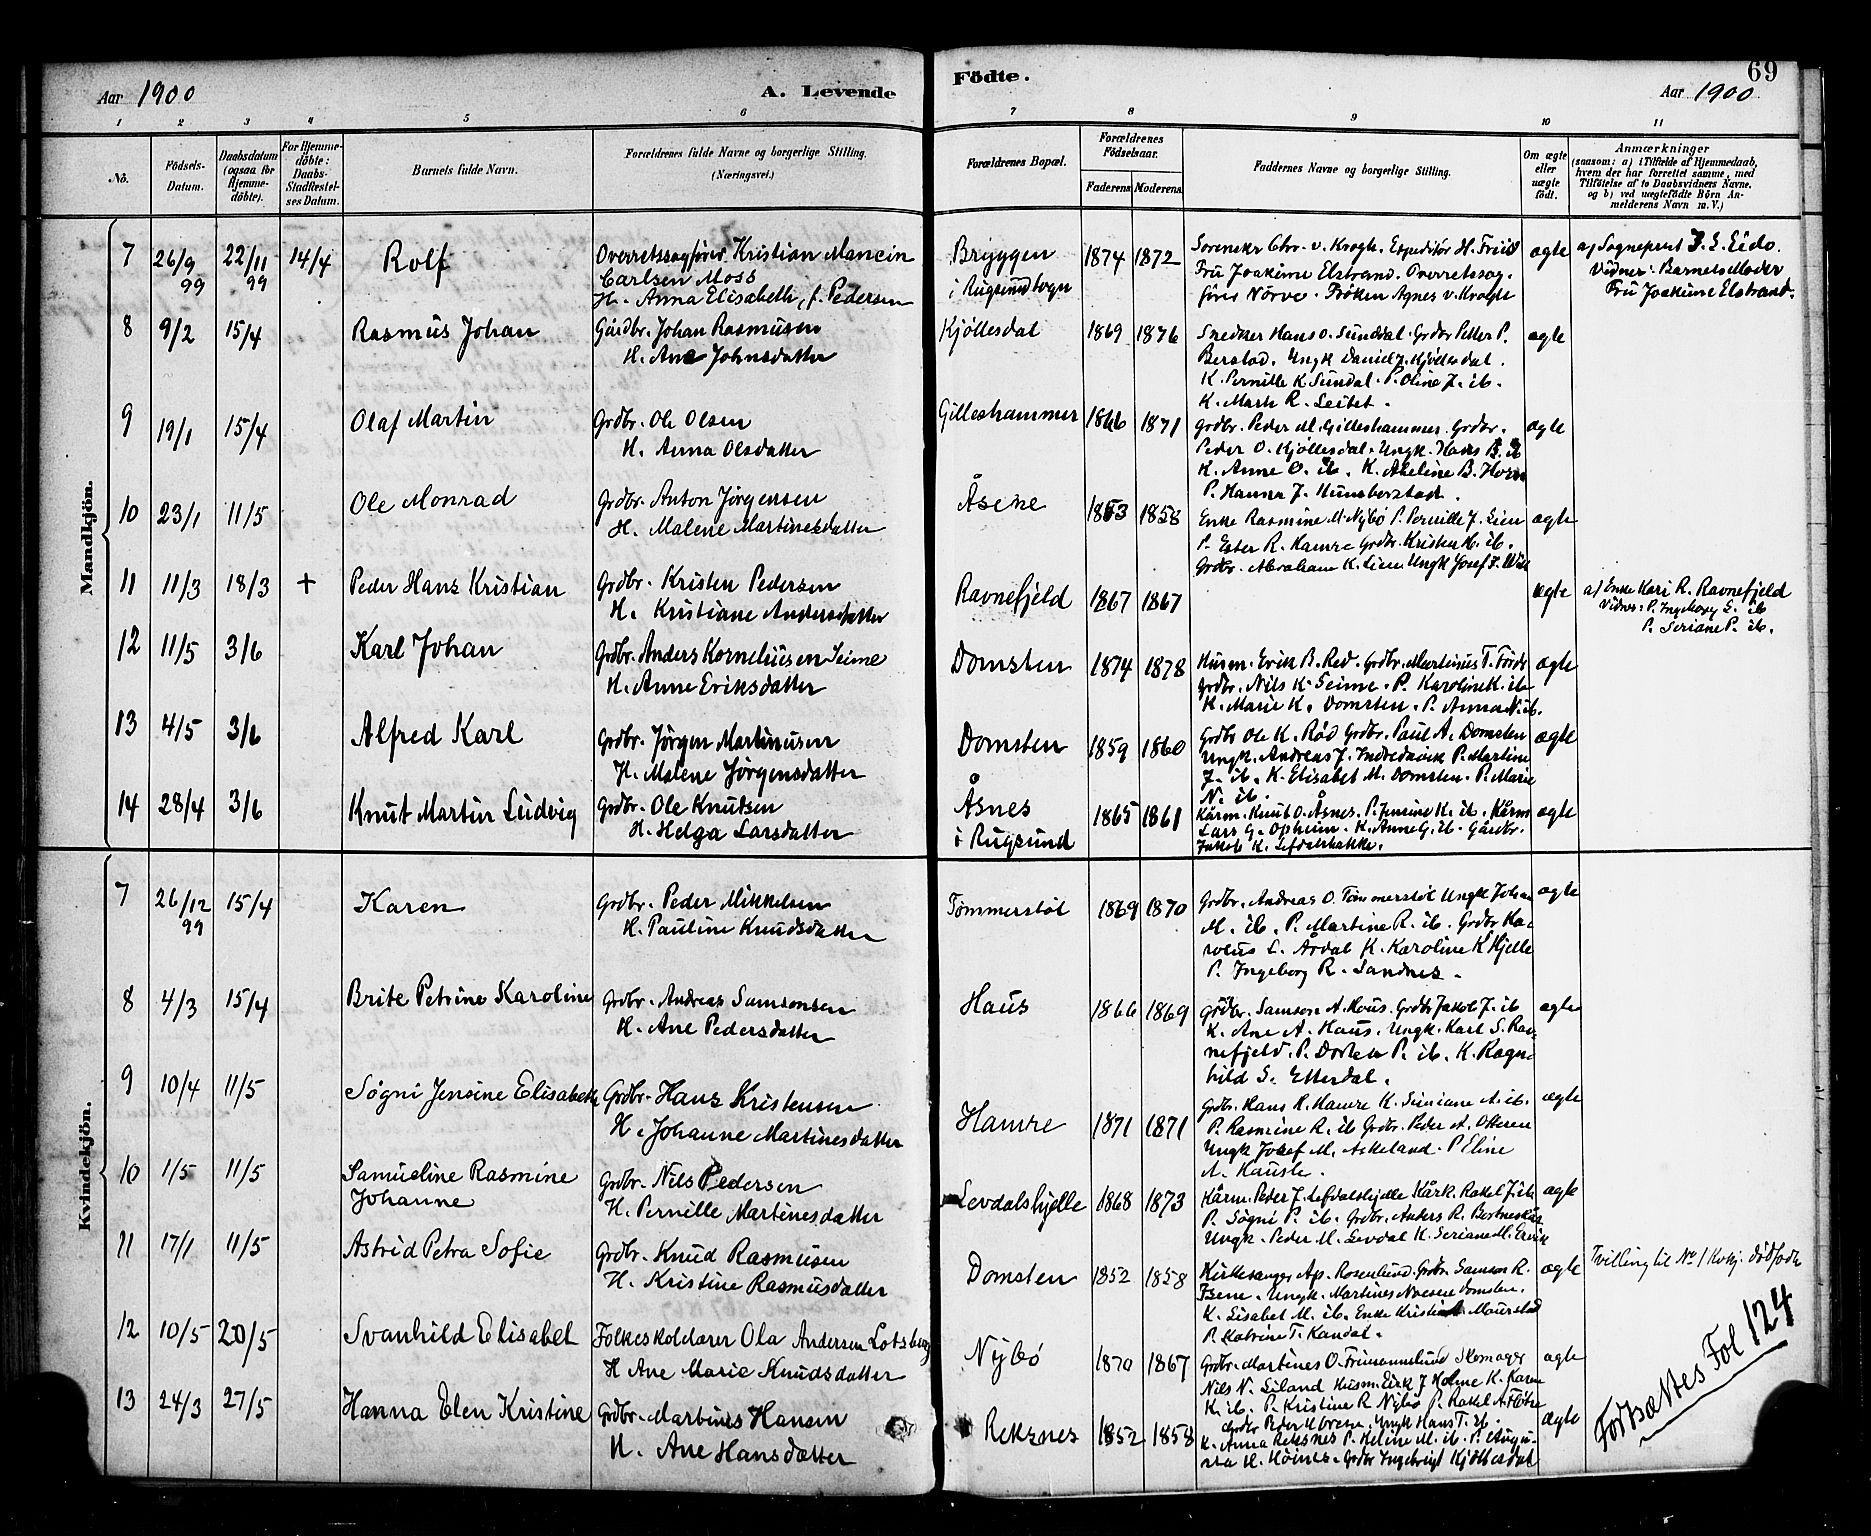 69
Aar 1900
A. Levende
Födte.
Aar 1900
1 2 3 4 5 6 7 8 9 10 11
No.
Födsels-Datum.
Daabsdatum (ogsaa for Hjemme-döbte).
For Hjemme-döbte: Daabs-Stadfæstel-ses Datum.
Barnets fulde Navn.
Forældrenes fulde Navne og borgerlige Stilling.
(Næringsvei.)
Forældrenes Bopæl.
Forældrenes Födselsaar.
Faderens Moderens
Faddernes Navne og borgerlige Stilling.
Om ægte eller uægte födt.
Anmærkninger
(saasom: a) i Tilfælde af Hjemmedaab,
hvem der har forrettet samme, med
Tilföielse af to Daabsvidners Navne,
og b) ved uægtefödte Börn An-
melderens Navn m. V.)
Mandkjön.
7 26/9 99 22/11 99 14/4 Rolf
Overretssagfører Kristian Mancin
Carlsen Moss
H. Anna Elisabeth, f. Pedersen
Bryggen
i Rugsundbogn
1874 1872
Sorenskr Chr. v. Krogh. Expeditör H. Friis
Fru Joakime Elstrand. Overretssag-
fører Nörve. Fröken Agnes v. Krogh
ægte
a) Sogneprest J. S. Eide.
Vidner: Barnets Moder
Fru Joakime Elstrand.
8 9/2 15/4 Rasmus Johan
Gårdbr. Johan Rasmusen
H. Ane Johnsdatter
Kjöllesdal
1869 1876
Snedker Hans O. Sunddal. Grdbr Petter P.
Berstad. Ungk Daniel J. Kjöllesdal.
K. Pernille K Sundal. P. Oline J. ib.
K. Marth R. Leitet.
ægte
9 19/1 15/4 Olaf Martin
Grdbr. Ole Olsen
H. Anna Olsdatter
Gilleshammer
1866 1871
Grdbr. Peder M. Gilleshammer. Grdbr.
Peder O. Kjöllesdal. Ungk. Hans B. ib
K. Anne O. ib. K. Akeline B. Horn
P. Hanna J. Hunsberstadt.
ægte
10 23/1 11/5 Ole Monrad
Grdbr. Anton Jørgensen
H. Malene Martinesdatter
Åsene
1853 1858
Enke Rasmine M. Nybø P. Pernille J. Lien
P. Ester R. Hamre Grdbr. Kristen H. ib.
Grdbr. Abraham K. Lien Ungk Josef
ægte
11 11/3 18/3 + Peder Hans Kristian
Grdbr. Kristen Pedersen
H. Kristiane Andersdatter
Ravnefjeld
1867 1867
ægte
a) Enke Kari R. Ravnefjeld
Vidner: P. Ingeborg E. ib
P. Seriane P. ib.
12 11/5 3/6 Karl Johan
Grdbr. Anders Korneliusen Seime
H. Anne Eriksdatter
Domsten
1874 1878
Husm. Erik B. Red. Grdbr. Martinus T. Förde
Grdbr. Nils K. Seime. P. Karoline K. ib
K. Marie K. Domsten. P. Anna N. ib.
ægte
13 4/5 3/6 Alfred Karl
Grdbr. Jörgen Martinusen
H. Malene Jørgensdatter
Domsten
1859 1860
Grdbr Ole K. Rød Grdbr. Paul A. Domsten
Ungk. Andreas J. Indredavik P. Martine
J. ib. K. Elisabet M. Domsten. P. Marie
N. ib.
ægte
14 28/4 3/6 Knut Martin Ludvig
Grdbr. Ole Knutsen
H. Helga Larsdatter
Åsnes
i Rugsund
1865 1861
Kårm. Knut O. Åsnes. P. Jensine K. ib. Kårm
Lars G. Opheim. K. Anne G. ib. Gårdbr.
Jakob K. Lefdalsbakke.
ægte
Kvindekjön.
7 26/12 99 15/4 Karen
Grdbr. Peder Mikkelsen
H. Pauline Knudsdatter
Tømmerstöl
1869 1870
Grdbr. Andreas O. Tømmerstöl Ungk Johan
M. ib. P. Martine R. ib. Grdbr Ka-
rolus L. Årdal K. Karoline K Hjelle
P. Ingeborg R. Sandnes.
ægte
8 4/3 15/4 Brite Petrine Karoline
Grdbr. Andreas Samsonsen
H. Ane Pedersdatter
Haus
1866 1869
Grdbr. Samson A. Haus. Grdbr Jakob J. ib
K. Ane A. Haus. Ungk. Karl S. Rav-
nefjeld. P. Dorthe P. ib. K. Ragn-
hild S. Etterdal.
ægte
9 10/4 11/5 Søgni Jensine Elisabeth
Grdbr. Hans Kristensen
H. Johanne Martinesdatter
Hamre
1871 1871
Grdbr. Hans R. Hamre K. Simiane A. ib.
P. Rasmine R. ib Grdbr. Peder A. Otteren
Ungk Josef M. Askeland. P Eline
A. Hausle.
ægte
10 1/5 11/5 Samueline Rasmine
Johanne
Grdbr. Nils Pedersen
H. Pernille Martinesdatter
Levdalshjelle
1868 1873
Kårm. Peder J. Lefdalshjelle Kårk. Rakel J. ib
P. Søgni P. ib. Grdbr. Anders R.
Ungk. Peder M. Levdal K. Seriane M.
ægte
11 17/1 11/5 Astrid Petra Sofie
Grdbr. Knud Rasmusen
H. Kristine Rasmusdatter
Domsten
1852 1858
Kirkesanger Ap. Rosenlund. Grdbr. Samson R.
Isene. Ungk. Martines Domsten.
K. Lisabet M. ib. Enke Kristi Maurstad
P. Katrine T. Kandal.
ægte
Tvilling til No 1 Kvkj. dödfødte
12 10/5 20/5 Svanhild Elisabet
Folkeskolelærer Ola Andersen Lotsberg
H Ane Marie Knudsdatter
Nybø
1870 1867
Grdbr. Martines O. Frimannslund Skomager
Nils N. Eiland Husm. Eirk J Holme K. Karen
K. ib. P. Kristine R Nybø P. Rakel A. Flöbre
ægte
13 24/3 27/5 Hanna Elen Kristine
Grdbr. Martines Hansen
H. Ane Hansdatter
Reksnes
1852 1858
Grdbr Peder Ungk Hans T. ib.
K. Anna Reksnes P. Heline M. ib. P. Augu-
sta H. Grdbr Ingebrigt Kjöllesdal
ægte
Fortsættes Fol 124